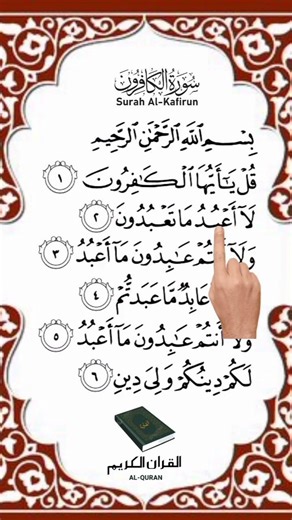 سُورَةُ الْكَافِرُونَ
Surah Al-Kafirun
بِسْمِ ٱللَّهِ ٱلرَّحْمَٰنِ ٱلرَّحِيمِ
قُلْ يَٰٓأَيُّهَا ٱلْكَٰفِرُونَ ١
لَآ أَعْبُدُ مَا تَعْبُدُونَ ٢
عَٰبِدُونَ مَآ أَعْبُدُ ٣
عَابِدٌ مَّا عَبَدتُّمْ ٤
وَلَآ أَنتُمْ عَٰبِدُونَ مَآ أَعْبُدُ ٥
لَكُمْ دِينُكُمْ وَلِيَ دِينِ ٦
القرآن الكريم
AL-QURAN